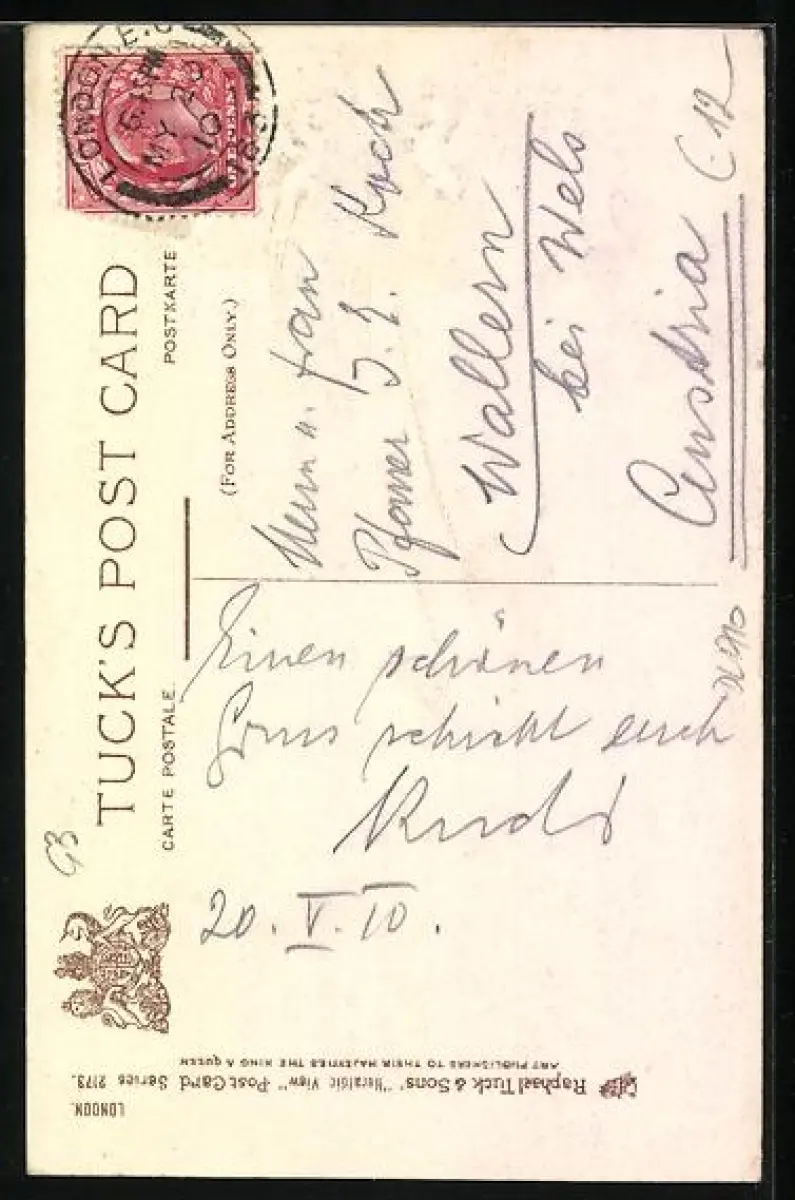 TUCK'S POST CARD
CARTE POSTALE.
POSTKARTE
(FOR ADDRESS ONLY.)
LONDON E.C
6.15 PM
MY 20
10
ONE PENNY
Einen schönen
Gruss schickt euch
Rudi
20. V. 10.
Herrn u. Frau
Pfarrer J. E. Koch
Wallern
bei Wels
Austria
C 12
GB
LONDON.
Raphael Tuck & Sons' "Heraldic View" Post Card Series 2173.
ART PUBLISHERS TO THEIR MAJESTIES THE KING & QUEEN